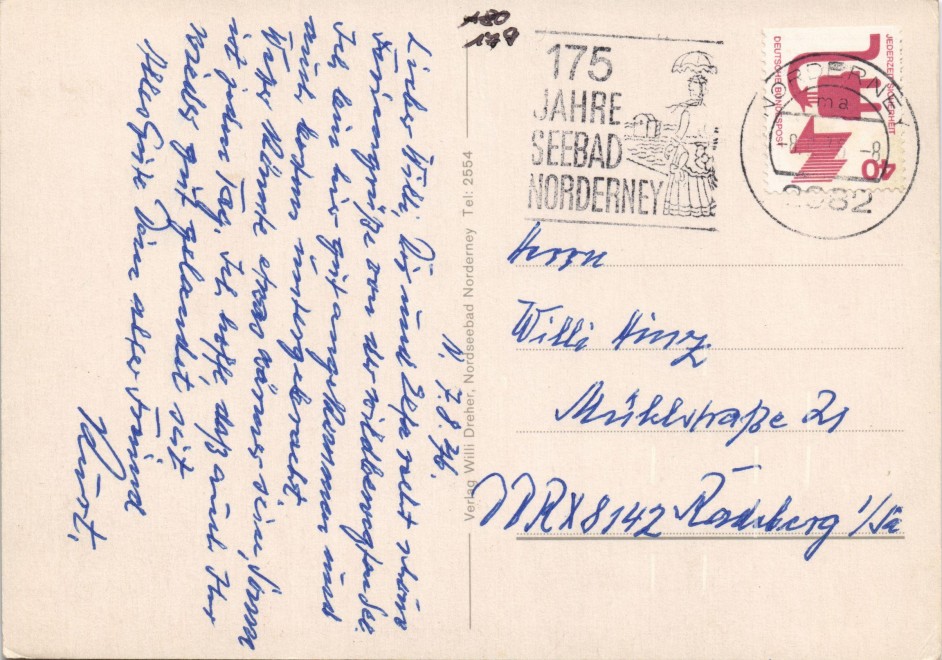 180
179
175
JAHRE
SEEBAD
NORDERNEY
NORDERNEY
ma
-8
2982
JEDERZEIT SICHERHEIT
DEUTSCHE BUNDESPOST
40
N. 7.8.76.
Lieber Willi, Dir und Elfe recht schöne
Feriengrüße von der
Ich bin hir gut angekommen und
auch bestens untergebracht
könnte etwas wärmer sein, Sonne
ist jeden Tag, Ich hoffe daß auch Ihr
wieder gut gelandet seit
Alles Gute Dein alter Freund
Kurt.
Verlag Willi Dreher, Nordseebad Norderney Tel: 2554
Herrn
Willi Hinz
Mühlstraße 21
8142 Radeberg i/Sa